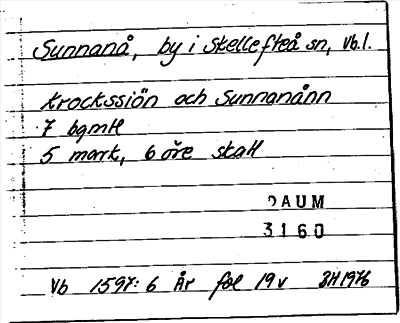 Sunnanå, by i Skellefteå sn, Vb.l.
Krockssiön och Sunnanånn
7 bgmtl
5 mark, 6 öre skatt
DAUM
3160
Vb 1597:6 År fol 19v BH1976